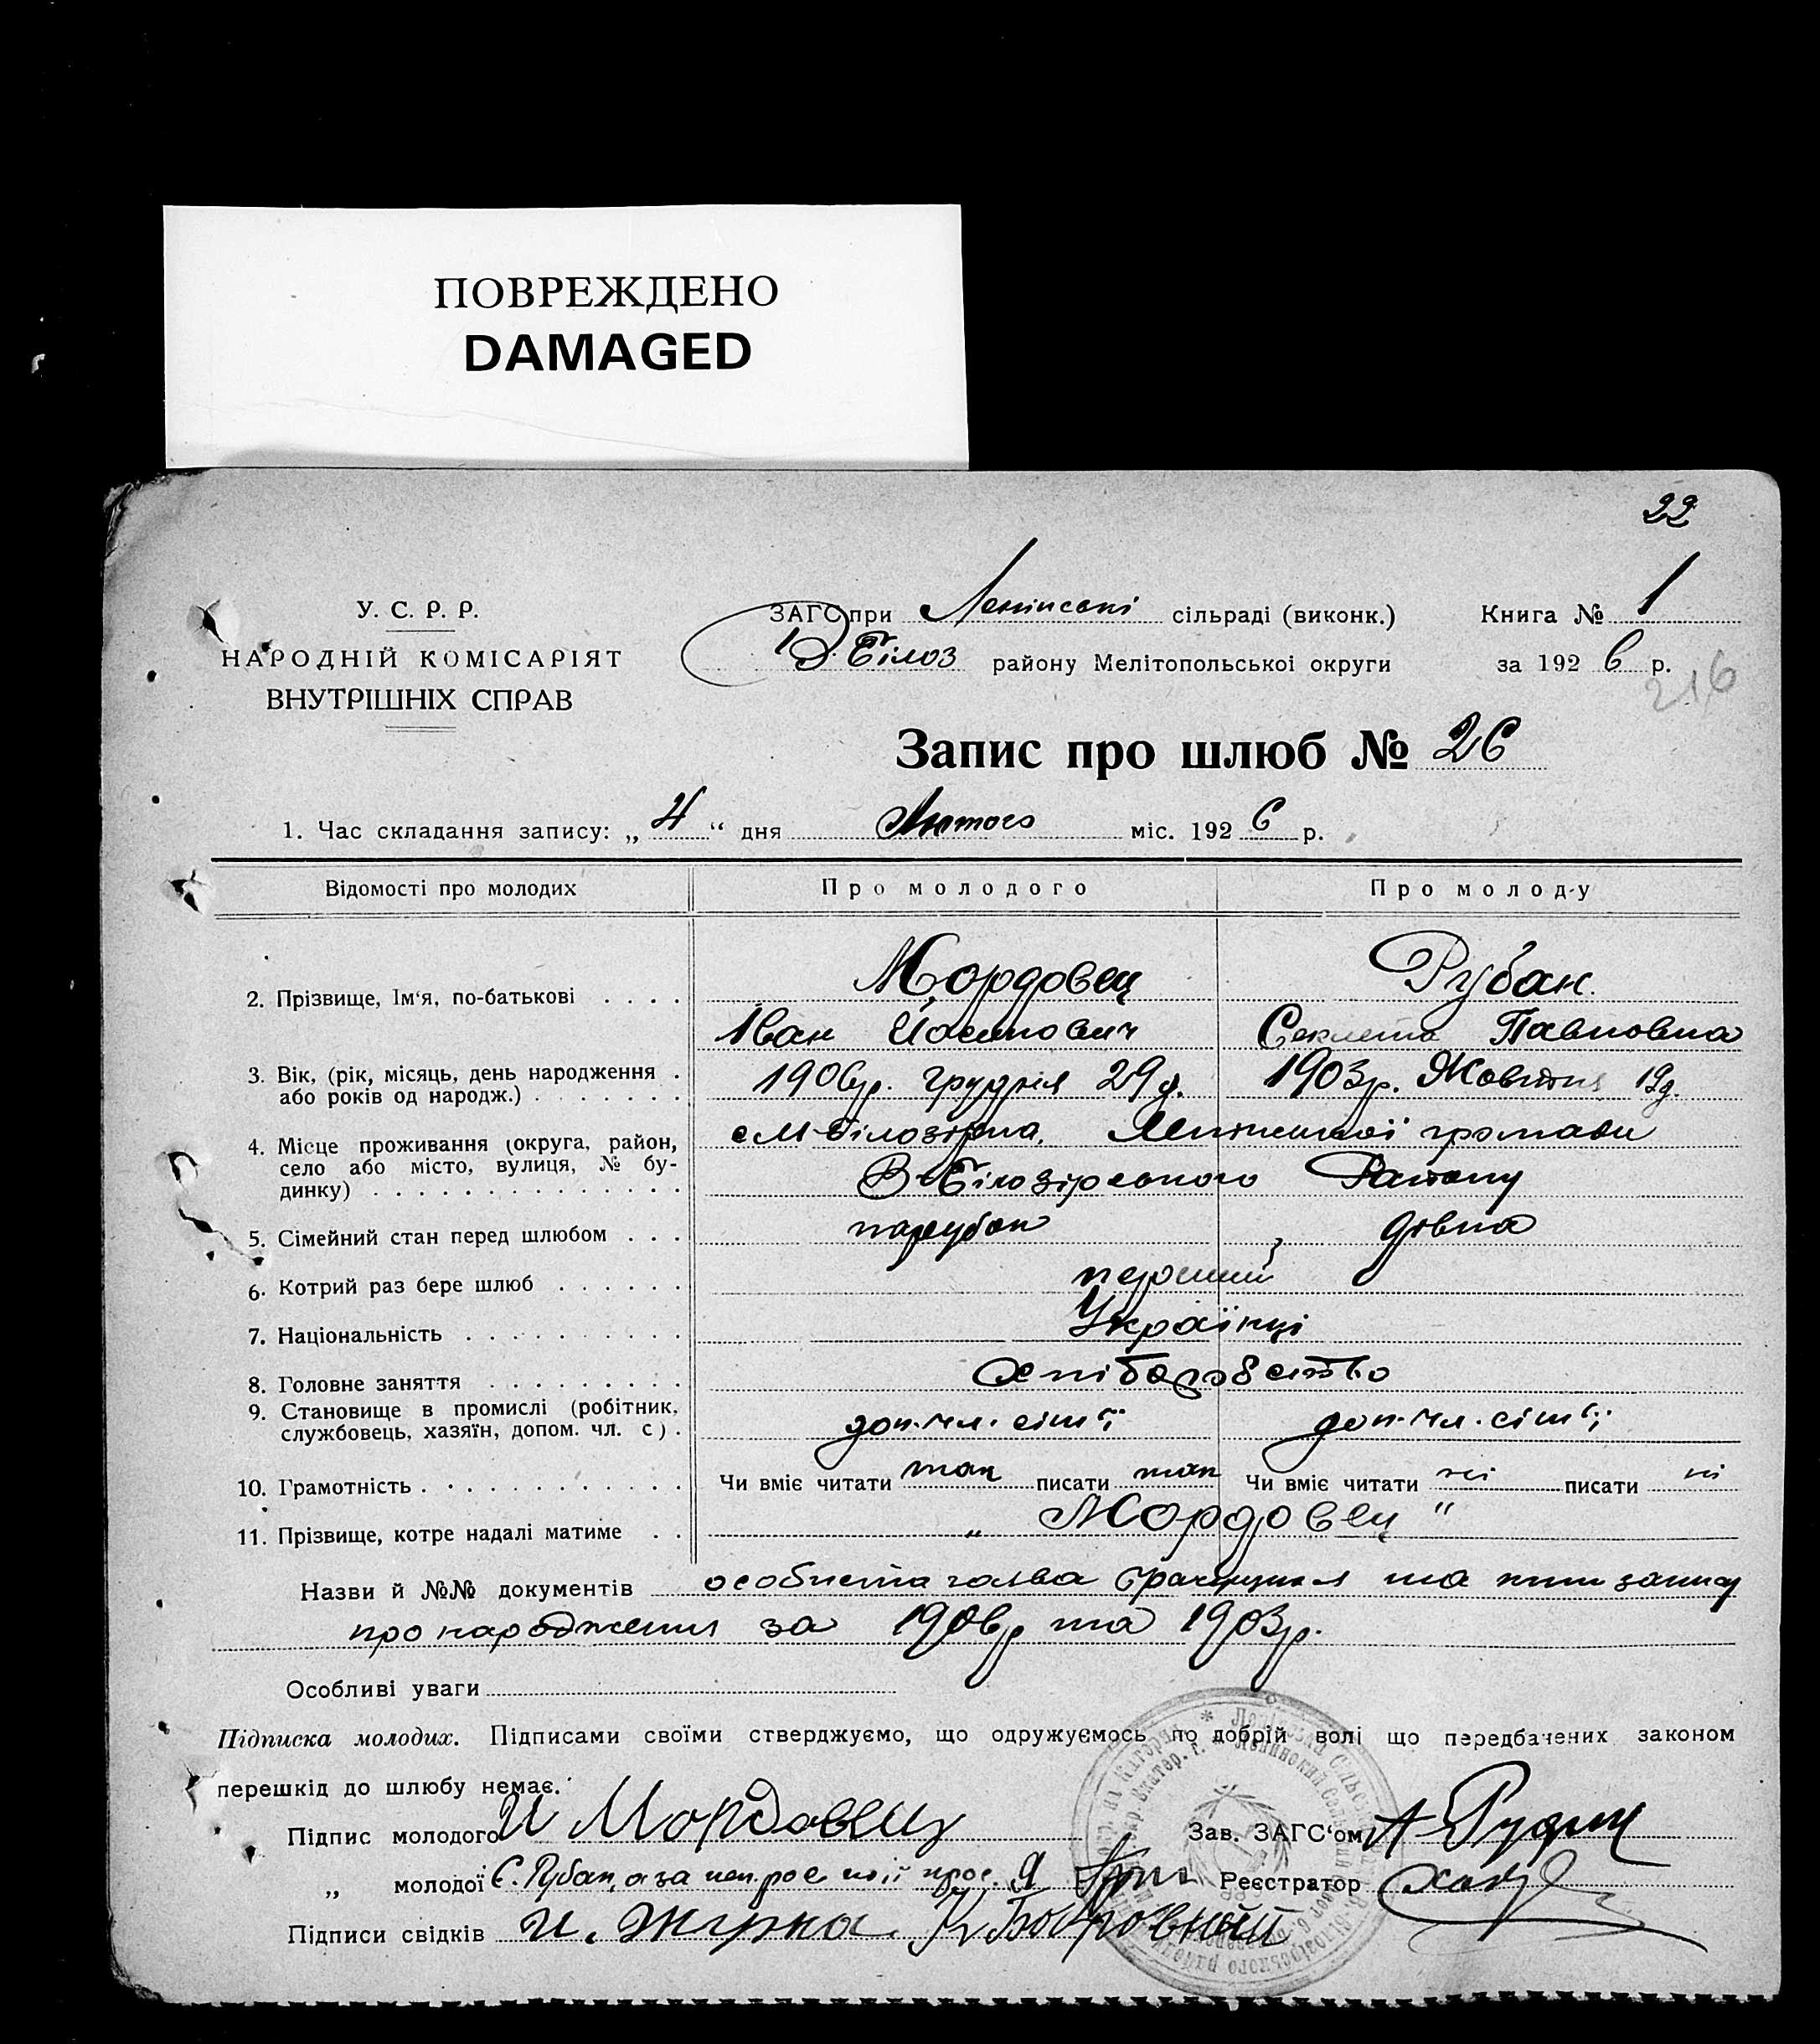 ПОВРЕЖДЕНО
DAMAGED
22
У. С. Р. Р.
НАРОДНІЙ КОМІСАРІЯТ
ВНУТРІШНІХ СПРАВ
ЗАГС при Ленінські сільраді (виконк.) Книга № 1
Білоз району Мелітопольської округи за 192 6 р.
216
Запис про шлюб № 26
1. Час складання запису: „ 4 “ дня Лютого міс. 192 6 р.
Відомості про молодих Про молодого Про молоду
2. Прізвище, Ім‘я, по-батькові . . . . Мордовец Рубан
Іван Йосипович Секлета Павловна
3. Вік, (рік, місяць, день народження . 1906р. Грудня 29д. 1903р. Жовтня 19д.
або років од народж.) . . . . . . .
4. Місце проживання (округа, район, с М-Білозірка, Ленінської громади
село або місто, вулиця, № бу-
динку) . . . . . . . . . . . . . . В-Білозірського Району
5. Сімейний стан перед шлюбом . . . парубок дівка
6. Котрий раз бере шлюб . . . . . . перший
7. Національність . . . . . . . . . . Українці
8. Головне заняття . . . . . . . . . Хліборобство
9. Становище в промислі (робітник, доп. чл. сім'ї доп. чл. сім'ї
службовець, хазяїн, допом. чл. с) .
10. Грамотність . . . . . . . . . . . . Чи вміє читати так писати так Чи вміє читати ні писати ні
11. Прізвище, котре надалі матиме . . „ Мордовец "
Назви й №№ документів особиста заява та запису
про народження за 1906р та 1903р.
Особливі уваги
Підписка молодих. Підписами своїми стверджуємо, що одружуємось по добрій волі що передбачених законом
перешкід до шлюбу немає.
Підпис молодого И Мордовец Зав. ЗАГС‘ом А
„ молодої Є. Рубан, а за Реєстратор
Підписи свідків И. Жирка. Бобровный